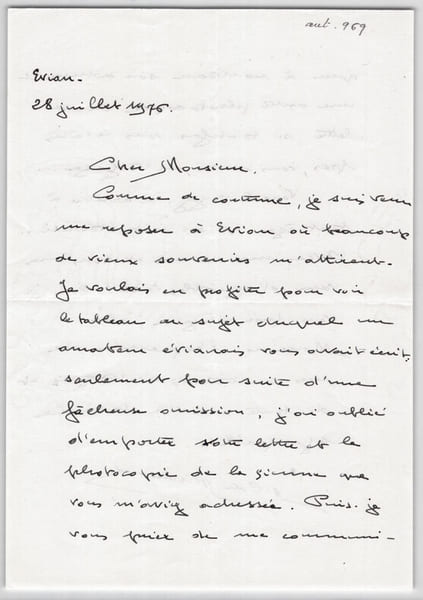 aut. 969
Evian.
28 juillet 1976.
Cher Monsieur.
Comme de coutume, je suis venu
me reposer à Evian où beaucoup
de vieux souvenirs m'attirent.
Je voulais en profiter pour voir
le tableau au sujet duquel un
amateur évianais vous avait écrit,
seulement par suite d'une
fâcheuse omission, j'ai oublié
d'emporter votre lettre et la
photocopie de la sienne que
vous m'aviez adressée. Puis-je
vous prier de me communi-